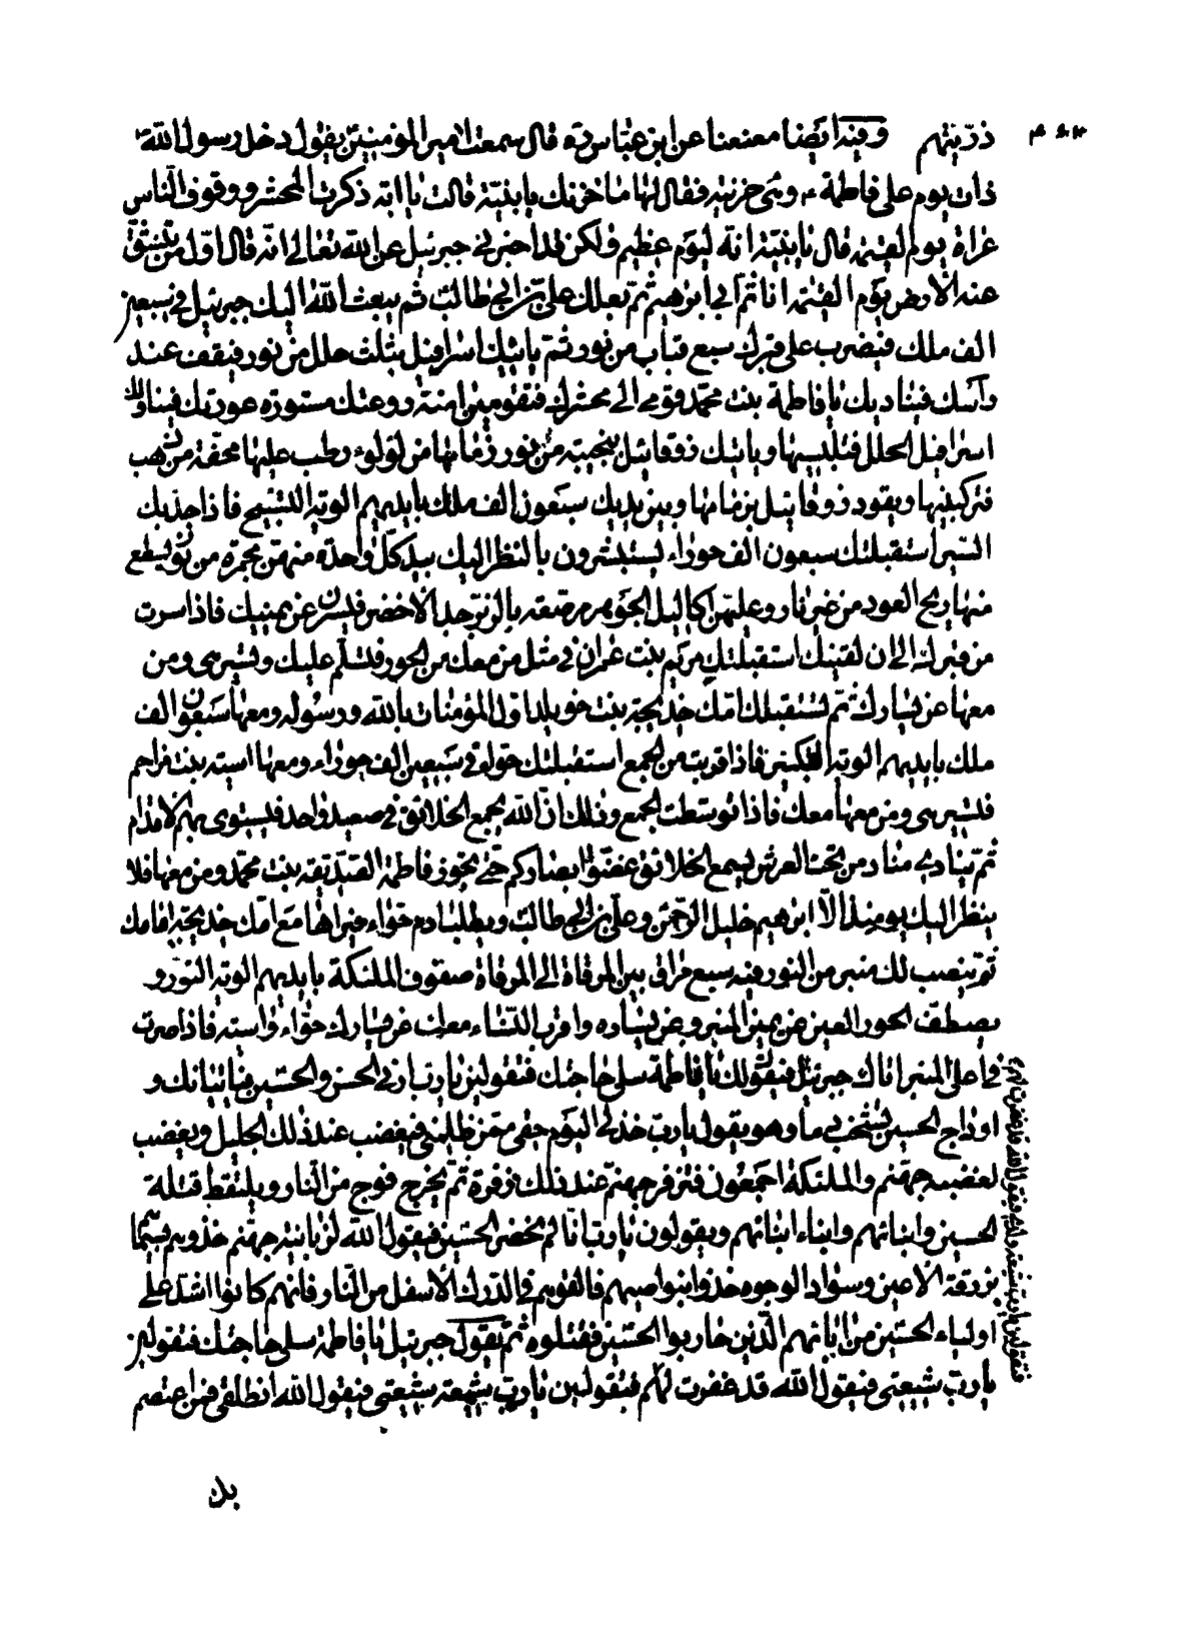 ذرّيتهم وفيه ايضا معنعنا عن ابن عبّاس ره قال سمعت امير المؤمنين يقول دخل رسول اللّه ص
ذات يوم على فاطمة ع وهى حزينه فقال لها ما حزنك يا بنيّة قالت يا ابه ذكرت المحشر ووقوف النّاس
عراة يوم القيمة قال يا بنيّة انّه ليوم عظيم ولكن قد اخبرنى جبرئيل عن اللّه تعالى انّه قال اوّل من تنشقّ
عنه الارض يوم القيمة انا ثمّ ابى ابرهيم ثمّ بعلك على بن ابى طالب ثم يبعث اللّه اليك جبرئيل فى سبعين
الف ملك فيضرب على قبرك سبع قباب من نور ثمّ ياتيك اسرافيل بثلث حلل من نور فيقف عند
رأسك فيناديك يا فاطمة بنت محمّد قومى الى محشرك فتقومين امنة روعتك مستورة عورتك فيناولك
اسرافيل الحلل فتلبسينها وياتيك زوقائيل بنجيبة من نور زمامها من لؤلؤ رطب عليها محفّة من ذهب
فتركبينها ويقود زوقائيل بزمامها وبين يديك سبعون الف ملك بايديهم الوية التّسبيح فاذا جدّ بك
السّير استقبلتك سبعون الف حوراء يستبشرون بالنظر اليك بيد كلّ واحدة منهنّ مجمرة من نور يسطع
منها ريح العود من غير نار وعليهنّ اكاليل الجوهر مرصّعة بالزّبرجد الاخضر فيسرن عن يمينك فاذا سرت
من قبرك الى ان لقينك استقبلتك مريم بنت عمران فى مثل من معك من الحور فتسلّم عليك وتسير هى ومن
معها عن يسارك ثمّ تستقبلك امّك خديجة بنت خويلد اوّل المؤمنات باللّه ورسوله ومعها سبعون الف
ملك بايديهم الوية التّكبير فاذا قربت من الجمع استقبلتك حوّاء فى سبعين الف حوراء ومعها اسية بنت مزاحم
فتسير هى ومن معها معك فاذا توسّطت الجمع وذلك انّ اللّه يجمع الخلائق فى صعيد واحد فيستوى بهم الاقدام
ثمّ ينادى مناد من تحت العرش يسمع الخلائق غضّوا ابصاركم حتّى تجوز فاطمة الصّدّيقة بنت محمّد ومن معها فلا
ينظر اليك يومئذ الّا ابرهيم خليل الرّحمن وعلى بن ابى طالب ويطلب ادم حوّاء فيراها مع امّك خديجة امامك
ثمّ ينصب لك منبر من النّور فيه سبع مراق بين المرقاة الى المرقاة صفوف الملئكة بايديهم الوية النّور و
يصطفّ الحور العين عن يمين المنبر وعن يساره واقرب النّساء معك عن يسارك حوّاء واسية فاذا صرت
فى اعلى المنبر اتاك جبرئيل فيقول لك يا فاطمة سلى حاجتك فتقولين يا ربّ ارنى الحسن والحسين فياتيانك و
اوداج الحسين تشخب دما وهو يقول يا ربّ خذ لى اليوم حقّى ممّن ظلمنى فيغضب عند ذلك الجليل ويغضب
لغضبه جهنّم والملئكة اجمعون فتزفر جهنّم عند ذلك زفرة ثمّ يخرج فوج من النّار ويلتقط قتلة
الحسين وابنائهم وابناء ابنائهم ويقولون يا ربّ انّا لم نحضر الحسين فيقول اللّه لزبانية جهنّم خذوهم بسيماهم
بزرقة الاعين وسواد الوجوه خذوا بنواصيهم فالقوهم فى الدّرك الاسفل من النّار فانّهم كانوا اشدّ على
اولياء الحسين من ابائهم الّذين حاربوا الحسين فقتلوه ثمّ يقول جبرئيل يا فاطمة سلى حاجتك فتقولين
يا ربّ شيعتى فيقول اللّه قد غفرت لهم فتقولين يا ربّ شيعة شيعتى فيقول اللّه انطلقى فمن اعتصم
فتقولين يا ربّ شيعة ولدى فيقول اللّه قد غفرت لهم
بك